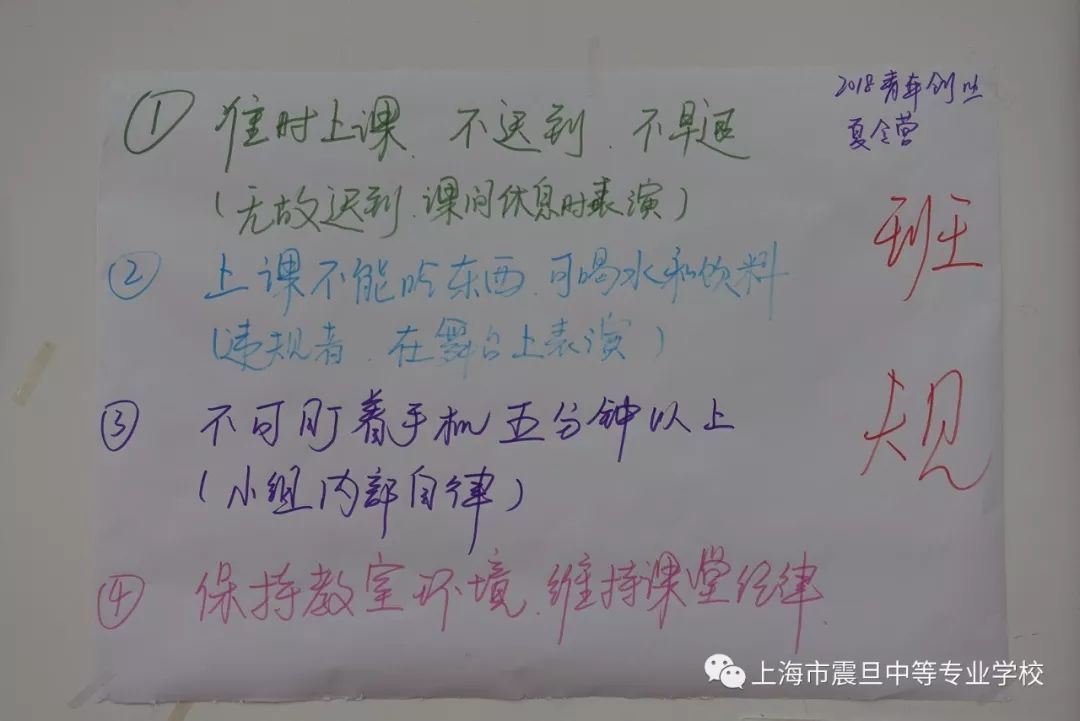 2018青年创业
夏令营
班规
① 准时上课、不迟到、不早退
(无故迟到、课间休息时表演)
② 上课不能吃东西、可喝水和饮料
(违规者、在舞台上表演)
③ 不可盯着手机五分钟以上
(小组内部自律)
④ 保持教室环境、维持课堂纪律
上海市震旦中等专业学校